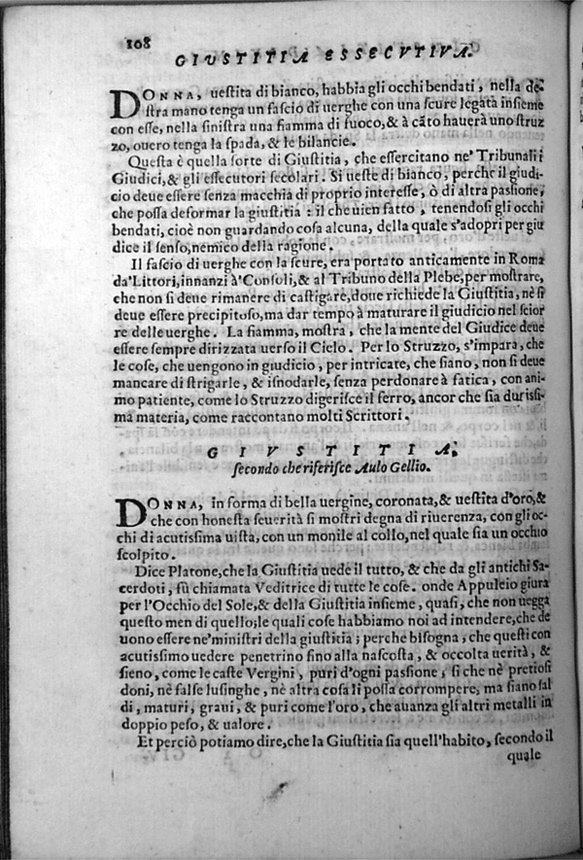 108
GIUSTITIA ESSECVTIVA.
DONNA, uestita di bianco, habbia gli occhi bendati, nella de-
stra mano tenga un fascio di uerghe con una scure legata insieme
con esse, nella sinistra una fiamma di fuoco, & à cãto hauerà uno struz
zo, ouero tenga la spada, & le bilancie.
Questa è quella sorte di Giustitia, che essercitano ne' Tribunali i
Giudici, & gli essecutori secolari. Si ueste di bianco, perche il giudi-
cio deue essere senza macchia di proprio interesse, ò di altra passione,
che possa deformar la giustitia: il che uien fatto, tenendosi gli occhi
bendati, cioè non guardando cosa alcuna, della quale s'adopri per giu
dice il senso, nemico della ragione.
Il fascio di uerghe con la scure, era portato anticamente in Roma
da' Littori, innanzi à' Consoli, & al Tribuno della Plebe, per mostrare,
che non si deue rimanere di castigare, doue richiede la Giustitia, nè si
deue essere precipitoso, ma dar tempo à maturare il giudicio nel scior
re delle uerghe. La fiamma, mostra, che la mente del Giudice deue
essere sempre dirizzata uerso il Cielo. Per lo Struzzo, s'impara, che
le cose, che uengono in giudicio, per intricate, che siano, non si deue
mancare di strigarle, & isnodarle, senza perdonare à fatica, con ani-
mo patiente, come lo Struzzo digerisce il ferro, ancor che sia durissi-
ma materia, come raccontano molti Scrittori.
GIVSTITIA,
secondo che riferisce Aulo Gellio.
DONNA, in forma di bella uergine, coronata, & uestita d'oro, &
che con honesta seuerità si mostri degna di riuerenza, con gli oc-
chi di acutissima uista, con un monile al collo, nel quale sia un occhio
scolpito.
Dice Platone, che la Giustitia uede il tutto, & che da gli antichi Sa-
cerdoti, fù chiamata Veditrice di tutte le cose. onde Appuleio giura
per l'Occhio del Sole, & della Giustitia insieme, quasi, che non uegga
questo men di quello; le quali cose habbiamo noi ad intendere, che de
uono essere ne' ministri della giustitia; perche bisogna, che questi con
acutissimo uedere penetrino fino alla nascosta, & occolta uerità, &
sieno, come le caste Vergini, puri d'ogni passione, si che nè pretiosi
doni, nè false lusinghe, nè altra cosa li possa corrompere, ma siano sal
di, maturi, graui, & puri come l'oro, che auanza gli altri metalli in
doppio peso, & ualore.
Et perciò potiamo dire, che la Giustitia sia quell'habito, secondo il
quale